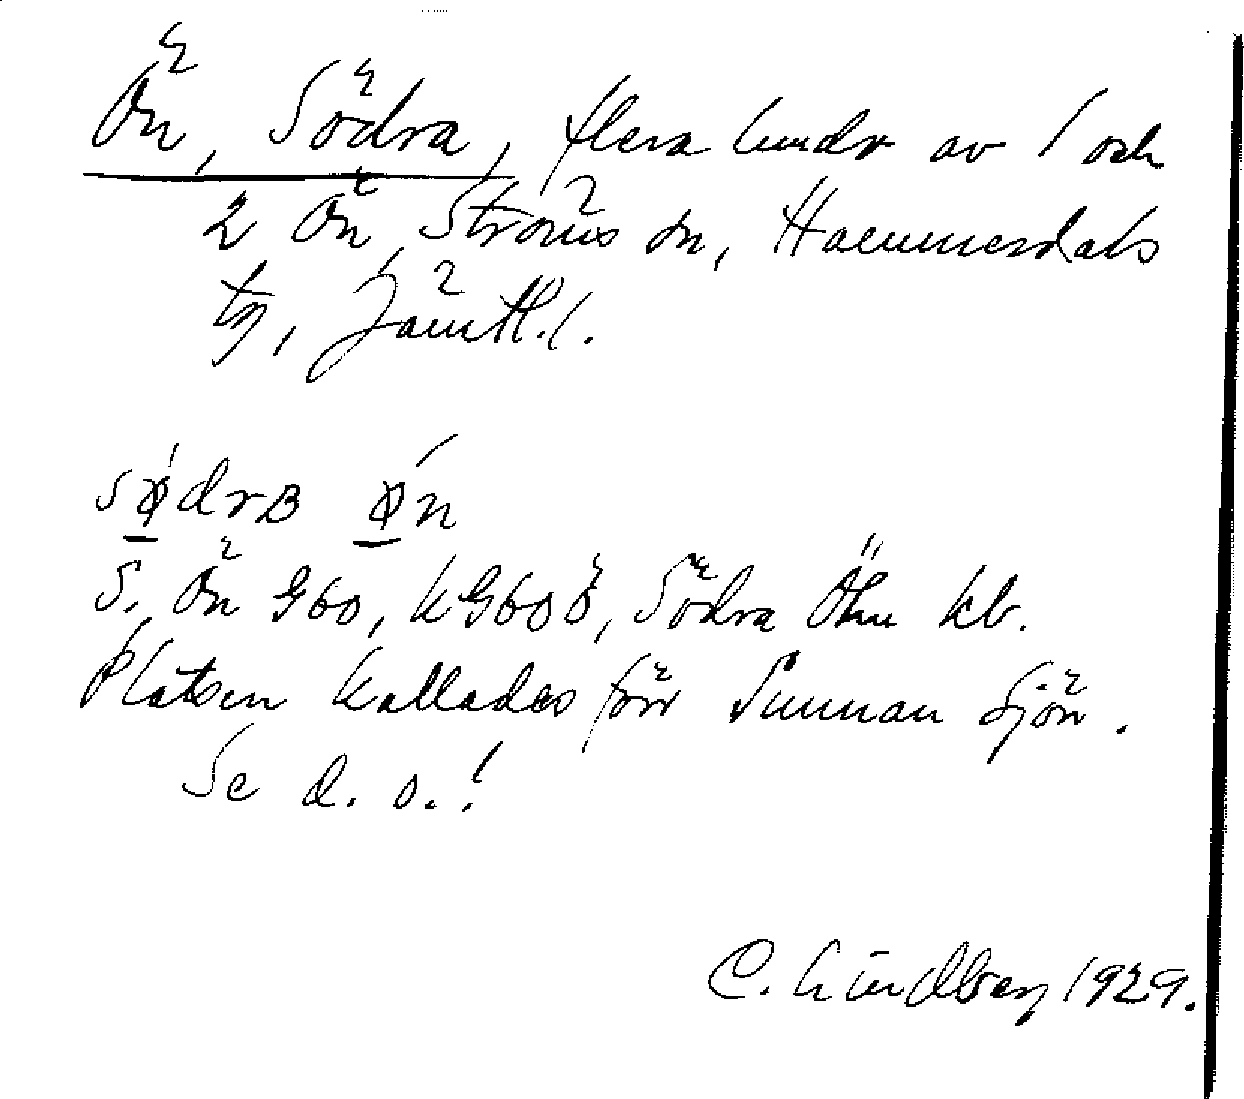 Ön, Södra, flera lundr av 1 och
2 Ön, Ströms sn, Hammerdals
tg, Jämtl. l.
södrB øn
S. Ön G60, KG60Ö, Södra Öhn kb.
Platsen kallades förr Sunnan Sjön.
Se d. o.!
C. Lindberg 1929.